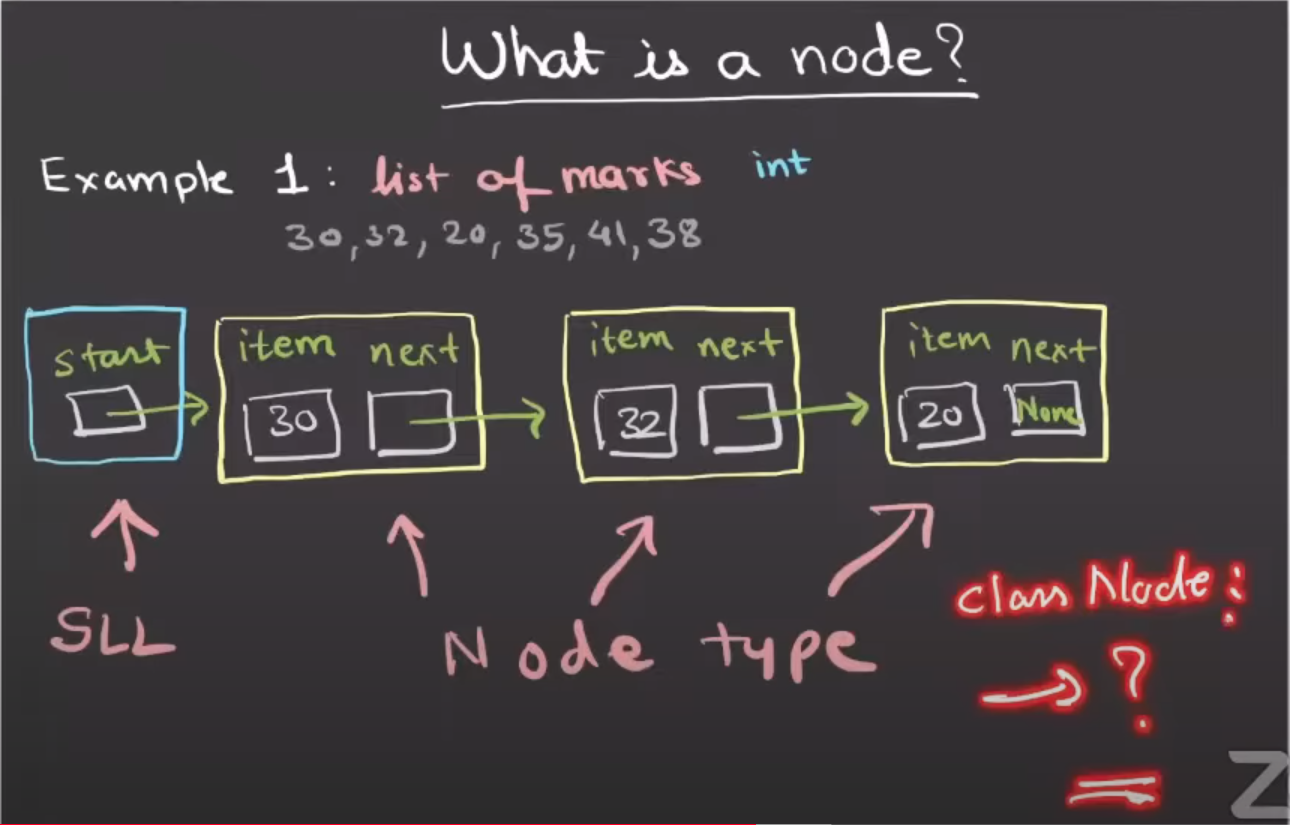 What is a node?
Example 1: list of marks int
30, 32, 20, 35, 41, 38
start item next item next item next
30 32 20 None
SLL Node type
class Node:
→ ?
Z